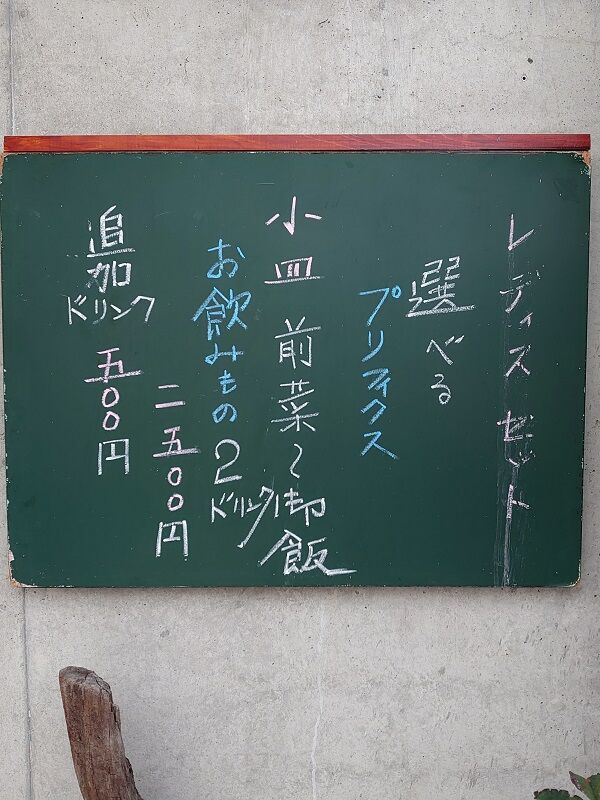 レディス セット
選べる
プリフィクス
小皿 前菜~御飯
お飲みもの 2ドリンク
二五〇〇円
追加ドリンク 五〇〇円